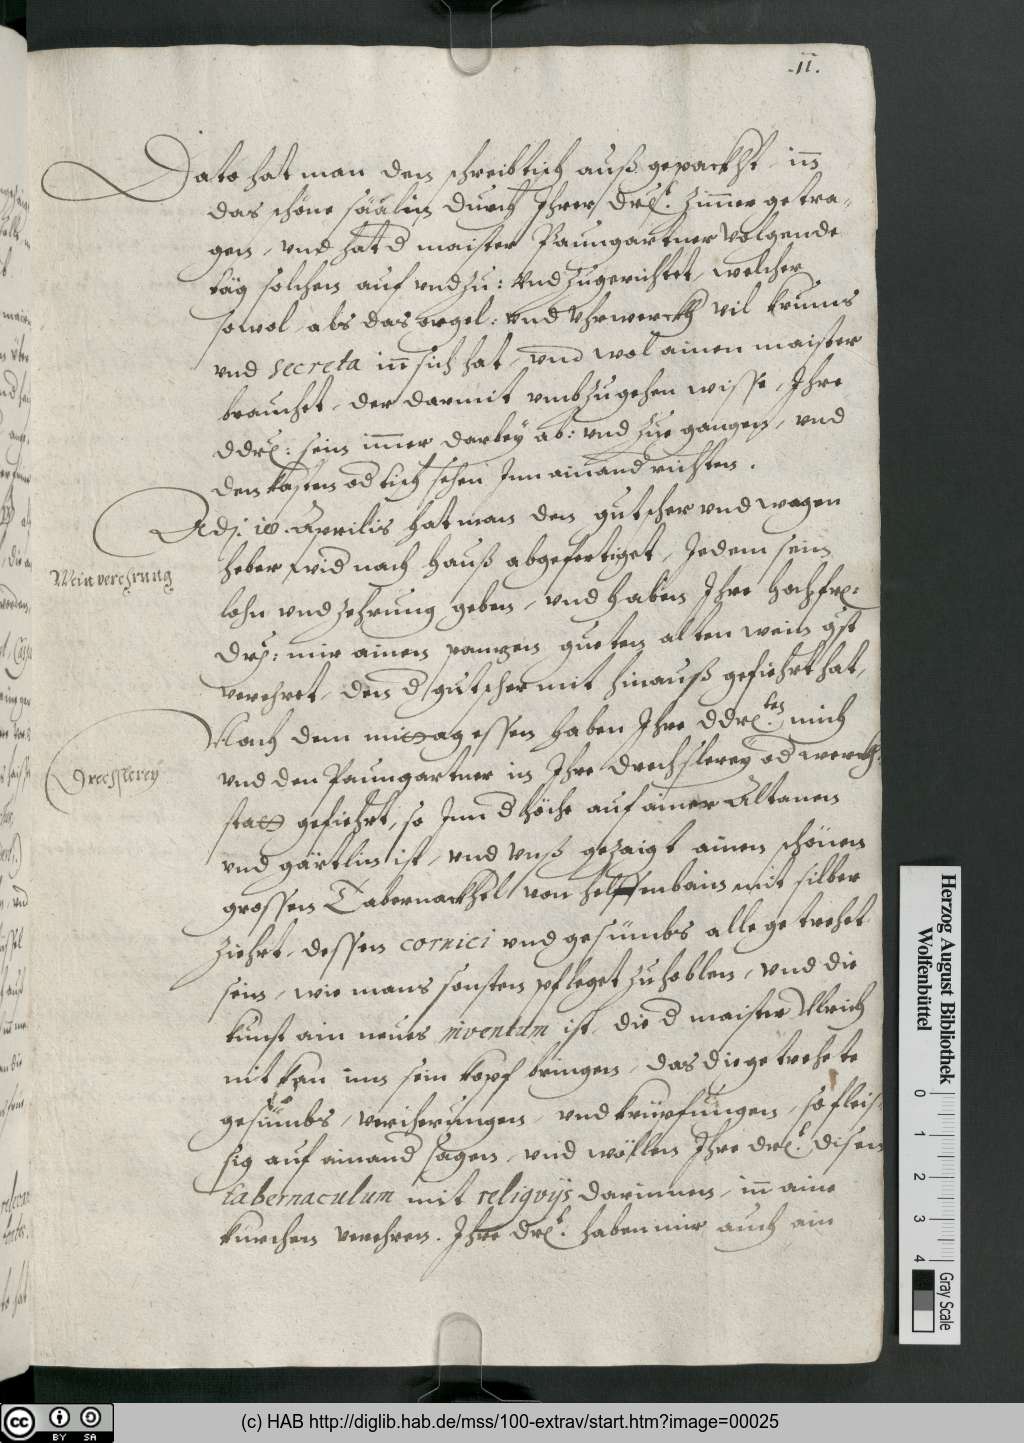 .11.
Dato hat man den schreibtisch auß gepackht, inn
das schöne säälin durch Ihrer Drl. zimer getra-
gen, vnd hat d maister Paumgartner volgende
täg solchen auf vnd zu: vnd zugerichtet, welcher
sowol, als das orgel: vnd Vhrwerckh vil krums
vnd secreta inn sich hat, vnd wol ainen maister
brauchet, der darmit vmbzugehen wisse, Ihre
ddrl: sein immer darbey ab: vnd zue gangen, vnd
den kasten od tisch sehen Inn ainand richten.
Adj. 10. Aprilis hat man den gutscher vnd wagen
heber wid nach hauß abgefertiget, Jedem sein
Wein verehrung
lohn vnd zehrung geben, vnd haben Ihre hochfr:
Drl: mir ainen panzen gueten alten wein
verehret, den d gutscher mit hinauß gefiehrt hat,
Nach dem mittag essen haben Ihre ddrl. mich
Drechslerey
vnd den Paumgartner in Ihre Drechslerey od werckh-
statt gefiehrt, so Inn d höche auf ainer Altanen
vnd gärtlin ist, vnd vnß gezaigt ainen schönen
grossen Tabernackhel von helffenbain mit silber
ziehrt, dessen cornici vnd gesümbs alle getrehet
sein, wie mans sonsten pfleget zu hoblen, vnd die
kunst ain neues inventum ist, die d maister Vlrich
nit kan inn sein kopf bringen, das die getrehete
gesümbs, vericherungen, vnd krüpfungen, so fleis-
sig auf ainand sagen, vnd wöllen Ihre drl. disen
tabernaculum mit religvijs darinnen, inn aine
kürchen verehren. Ihre Drl. haben mir auch ain
Herzog August Bibliothek
Wolfenbüttel
0 1 2 3 4
Gray Scale
cc BY SA
(c) HAB http://diglib.hab.de/mss/100-extrav/start.htm?image=00025